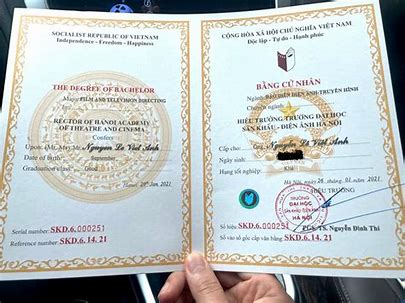 SOCIALIST REPUBLIC OF VIETNAM
Independence - Freedom - Happiness
THE DEGREE OF BACHELOR
Major: FILM AND TELEVISION DIRECTING
RECTOR OF HANOI ACADEMY
OF THEATRE AND CINEMA
Confers
Upon: (Mr, Ms) Mr Nguyen Le Viet Anh
Date of birth: September
Graduation class: Good
Hanoi, 2021
Serial number: SKD.6.000251
Reference number: SKD.6.14.21
CỘNG HÒA XÃ HỘI CHỦ NGHĨA VIỆT NAM
Độc lập - Tự do - Hạnh phúc
BẰNG CỬ NHÂN
Ngành: ĐẠO DIỄN ĐIỆN ẢNH-TRUYỀN HÌNH
Chuyên ngành:
HIỆU TRƯỞNG TRƯỜNG ĐẠI HỌC
SÂN KHẤU - ĐIỆN ẢNH HÀ NỘI
Cấp: Nguyễn Lê Việt Anh
Ngày sinh:
Hạng tốt nghiệp: Khá
Hà Nội, 2021
HIỆU TRƯỞNG
TRƯỜNG
ĐẠI HỌC
SÂN KHẤU ĐIỆN ẢNH
HÀ NỘI
Số hiệu: SKD.6.000251
PGS. TS. Nguyễn Đình Thi
Số vào sổ gốc cấp văn bằng: SKD.6.14.21